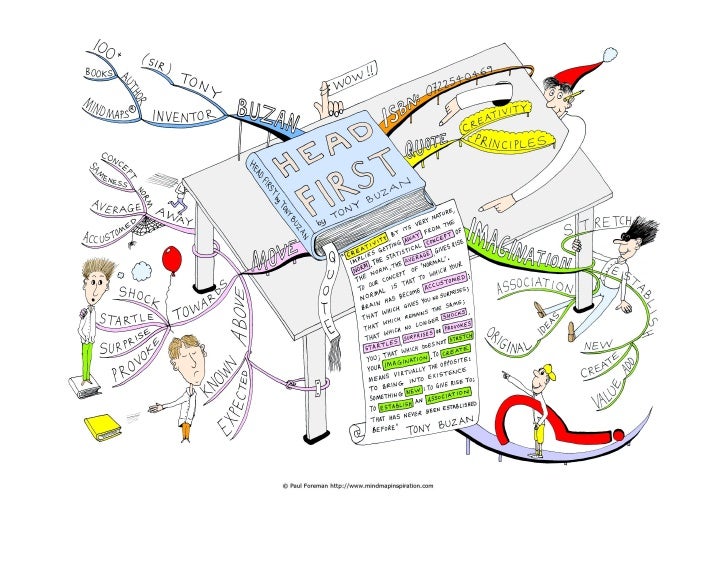 100+
BOOKS
AUTHOR
MINDMAPS®
(SIR) TONY
INVENTOR
BUZAN
WOW!!
ISBN: 0722540469
QUOTE
CREATIVITY
PRINCIPLES
HEAD
FIRST
by TONY BUZAN
HEAD FIRST by TONY BUZAN
CONCEPT
NORM
SAMENESS
AVERAGE
ACCUSTOMED
AWAY
MOVE
TOWARDS
SHOCK
STARTLE
SURPRISE
PROVOKE
ABOVE
NOWN
EXPECTED
QUOTE
CREATIVITY BY ITS VERY NATURE,
IMPLIES GETTING AWAY FROM THE
NORM, THE STATISTICAL CONCEPT OF
THE NORM, THE AVERAGE GIVES RISE
TO OUR CONCEPT OF 'NORMAL'.
NORMAL IS THAT TO WHICH YOUR
BRAIN HAS BECOME ACCUSTOMED;
THAT WHICH GIVES YOU NO SURPRISES;
THAT WHICH REMAINS THE SAME;
THAT WHICH NO LONGER SHOCKS,
STARTLES SURPRISES OR PROVOKES
YOU; THAT WHICH DOES NOT STRETCH
YOUR IMAGINATION. TO CREATE
MEANS VIRTUALLY THE OPPOSITE:
TO BRING INTO EXISTENCE
SOMETHING NEW; TO GIVE RISE TO;
TO ESTABLISH AN ASSOCIATION
THAT HAS NEVER BEEN ESTABLISHED
BEFORE" TONY BUZAN
IMAGINATION
STRETCH
ASSOCIATION
ORIGINAL IDEAS
ESTABLISH
NEW
CREATE
VALUE ADD
© Paul Foreman http://www.mindmapinspiration.com